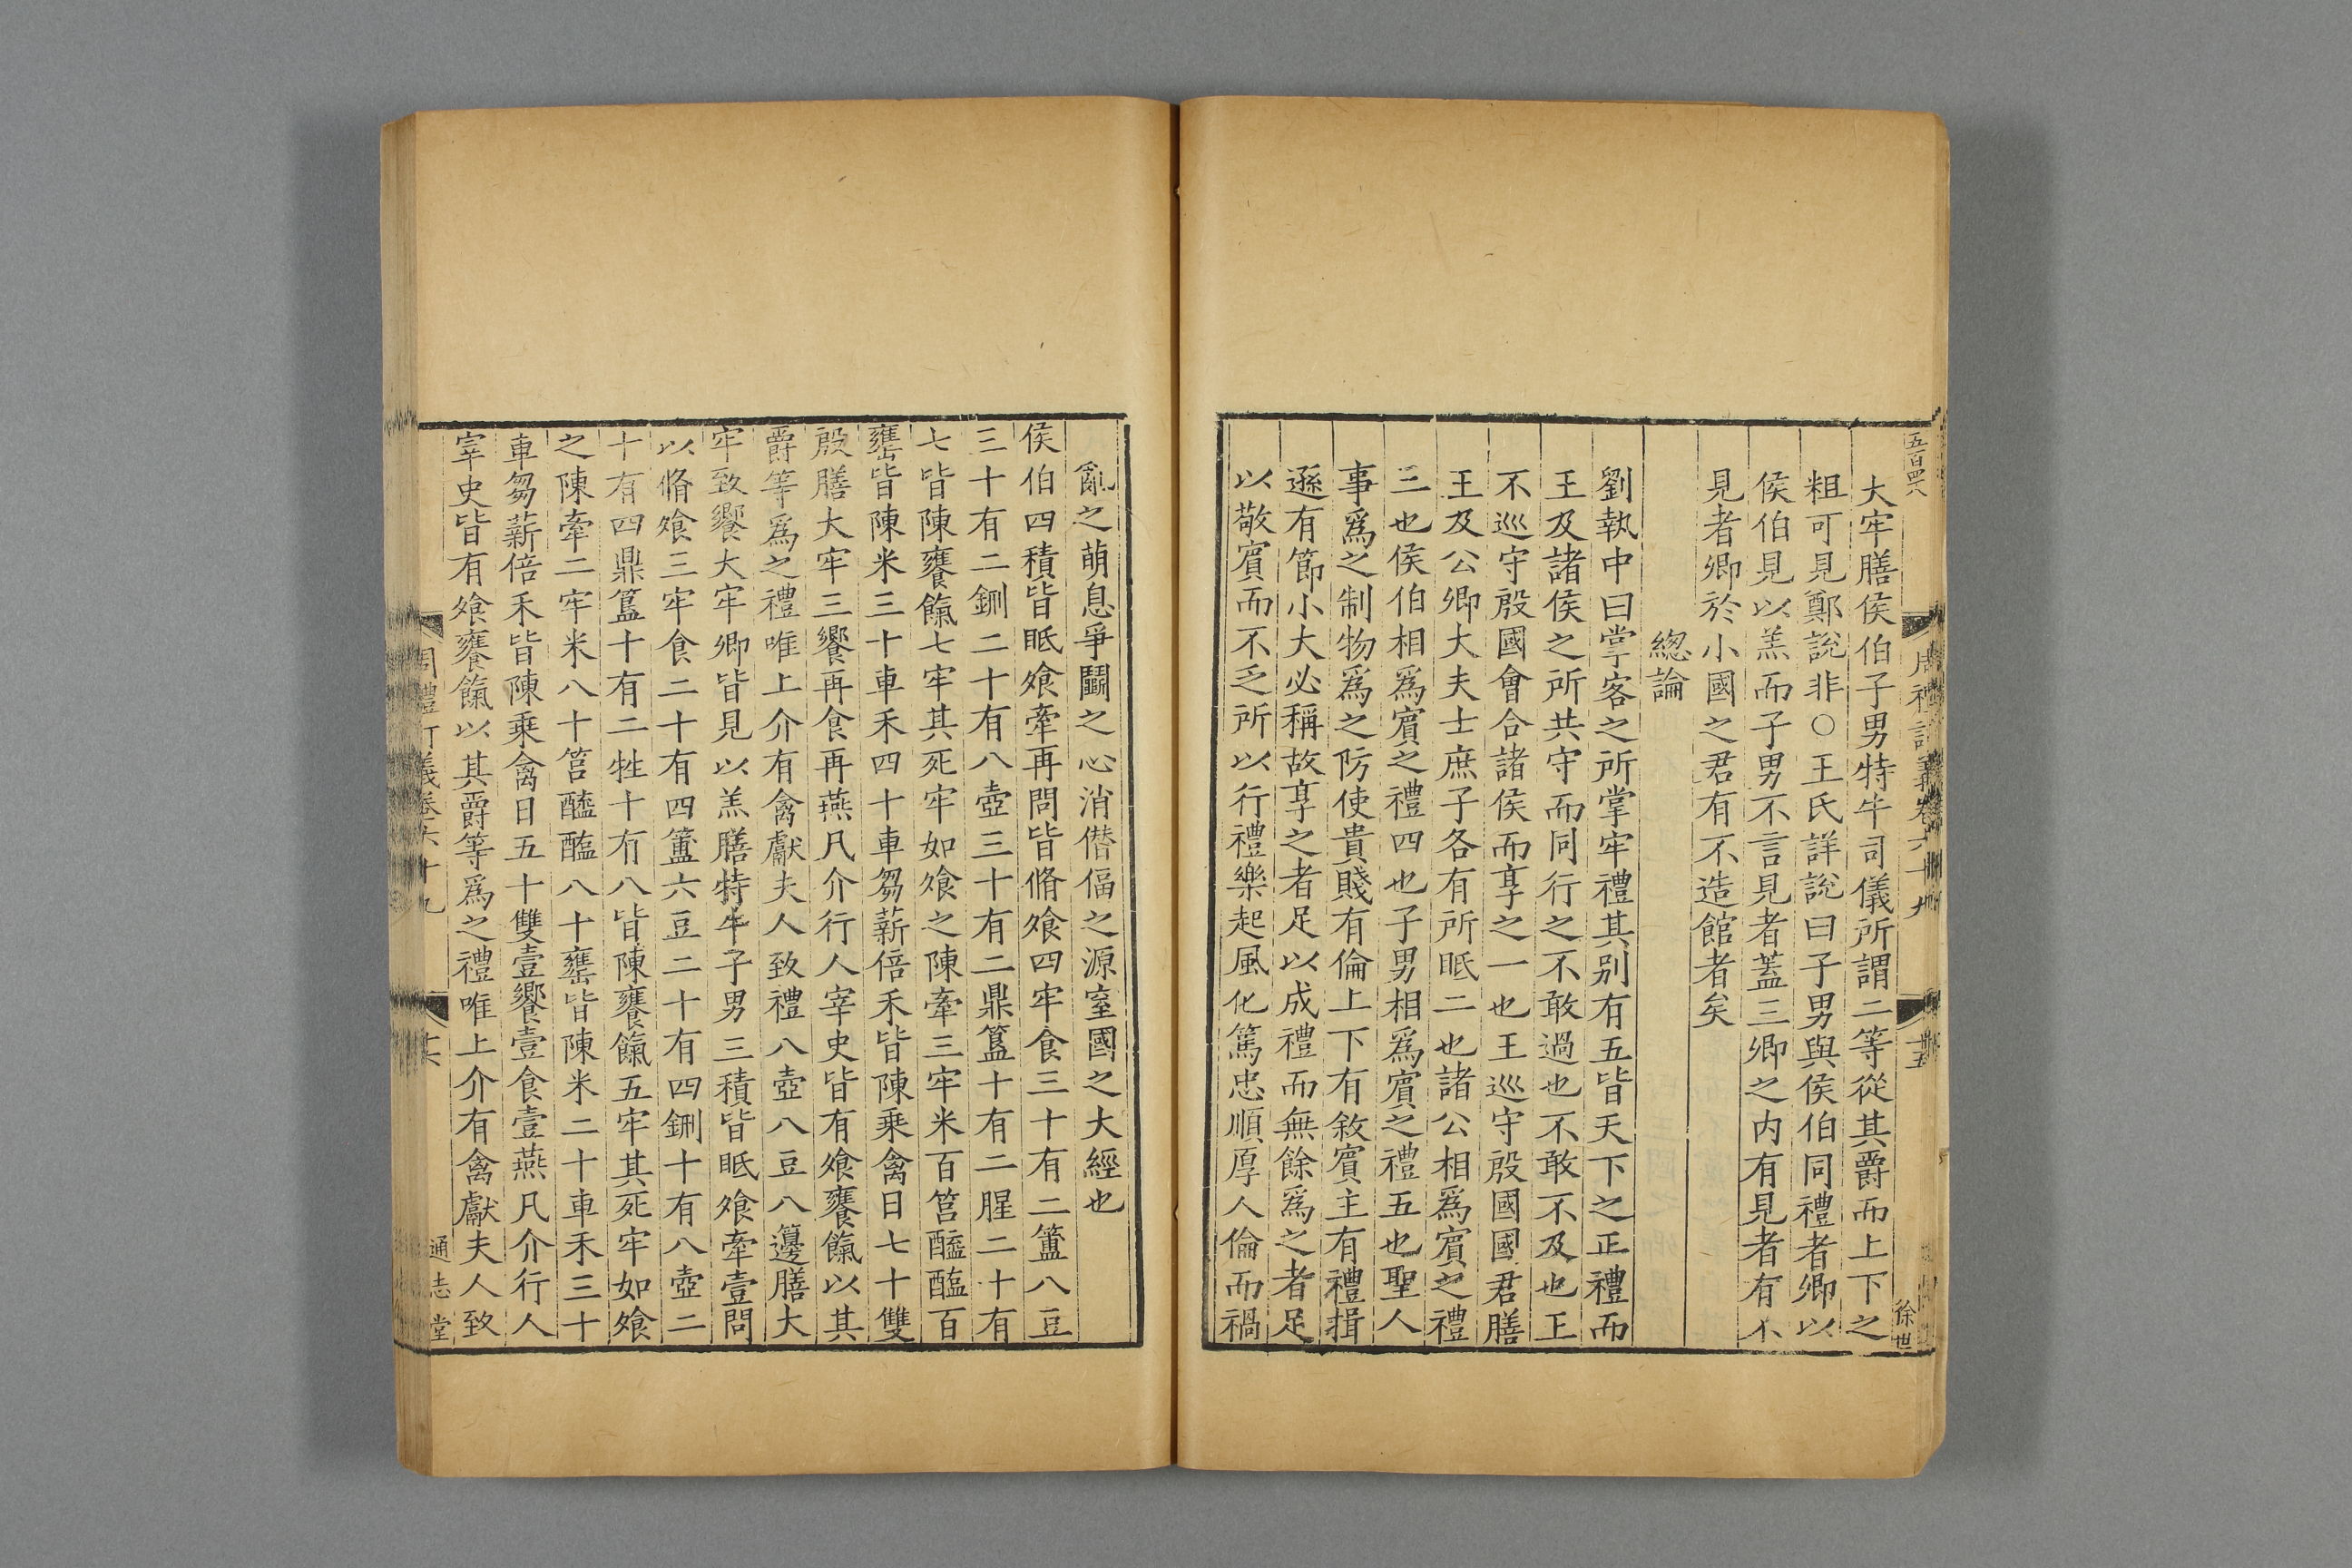 五百四八
周禮訂義卷六十九
十五
徐世
大牢膳侯伯子男特牛司儀所謂二等從其爵而上下之
粗可見鄭說非○王氏詳說曰子男與侯伯同禮者卿以
侯伯見以羔而子男不言見者蓋三卿之内有見者有不
見者卿於小國之君有不造館者矣
總論
劉執中曰掌客之所掌牢禮其别有五皆天下之正禮而
王及諸侯之所共守而同行之不敢過也不敢不及也王
不巡守殷國會合諸侯而享之一也王巡守殷國國君膳
王及公卿大夫士庶子各有所眂二也諸公相爲賓之禮
三也侯伯相爲賓之禮四也子男相爲賓之禮五也聖人
事爲之制物爲之防使貴賤有倫上下有敘賓主有禮揖
遜有節小大必稱故享之者足以成禮而無餘爲之者足
以敬賓而不乏所以行禮樂起風化篤忠順厚人倫而禍
亂之萌息爭鬭之心消僭偪之源窒國之大經也
侯伯四積皆眂飧牽再問皆脩飧四牢食三十有二簠八豆
三十有二鉶二十有八壺三十有二鼎簋十有二腥二十有
七皆陳饔餼七牢其死牢如飧之陳牽三牢米百筥醯醢百
罋皆陳米三十車禾四十車芻薪倍禾皆陳乘禽日七十雙
殷膳大牢三饗再食再燕凡介行人宰史皆有飧饔餼以其
爵等爲之禮唯上介有禽獻夫人致禮八壺八豆八籩膳大
牢致饗大牢卿皆見以羔膳特牛子男三積皆眂飧牽壹問
以脩飧三牢食二十有四簠六豆二十有四鉶十有八壺二
十有四鼎簋十有二牲十有八皆陳饔餼五牢其死牢如飧
之陳牽二牢米八十筥醯醢八十罋皆陳米二十車禾三十
車芻薪倍禾皆陳乘禽日五十雙壹饗壹食壹燕凡介行人
宰史皆有飧饔餼以其爵等爲之禮唯上介有禽獻夫人致
周禮訂義卷六十九
十六
通志堂